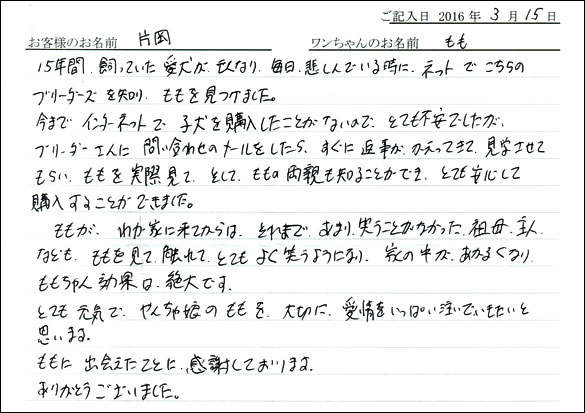 ご記入日 2016年 3月 15日
お客様のお名前 片岡 ワンちゃんのお名前 もも
15年間、飼っていた愛犬が、亡くなり、毎日、悲しんでいる時に、ネットでこちらの
ブリーダーズを知り、ももを見つけました。
今まで インターネットで 子犬を購入したことがないので、とても不安でしたが、
ブリーダーさんに 問い合わせのメールをしたら、すぐに返事が、かえってきて、見学させて
もらい、ももを実際見て、そして、ももの両親も知ることができ、とても安心して
購入することができました。
ももが、わが家に来てからは、それまで、あまり、笑うことがなかった、祖母、主人、
なども、ももを見て、触れて、とても よく笑うようになり、家の中が、あかるくなり、
ももちゃん効果は、絶大です。
とても 元気で、やんちゃ娘の ももを、大切に、愛情をいっぱい注いでいきたいと
思います。
ももに 出会えたことに、感謝しております。
ありがとうございました。